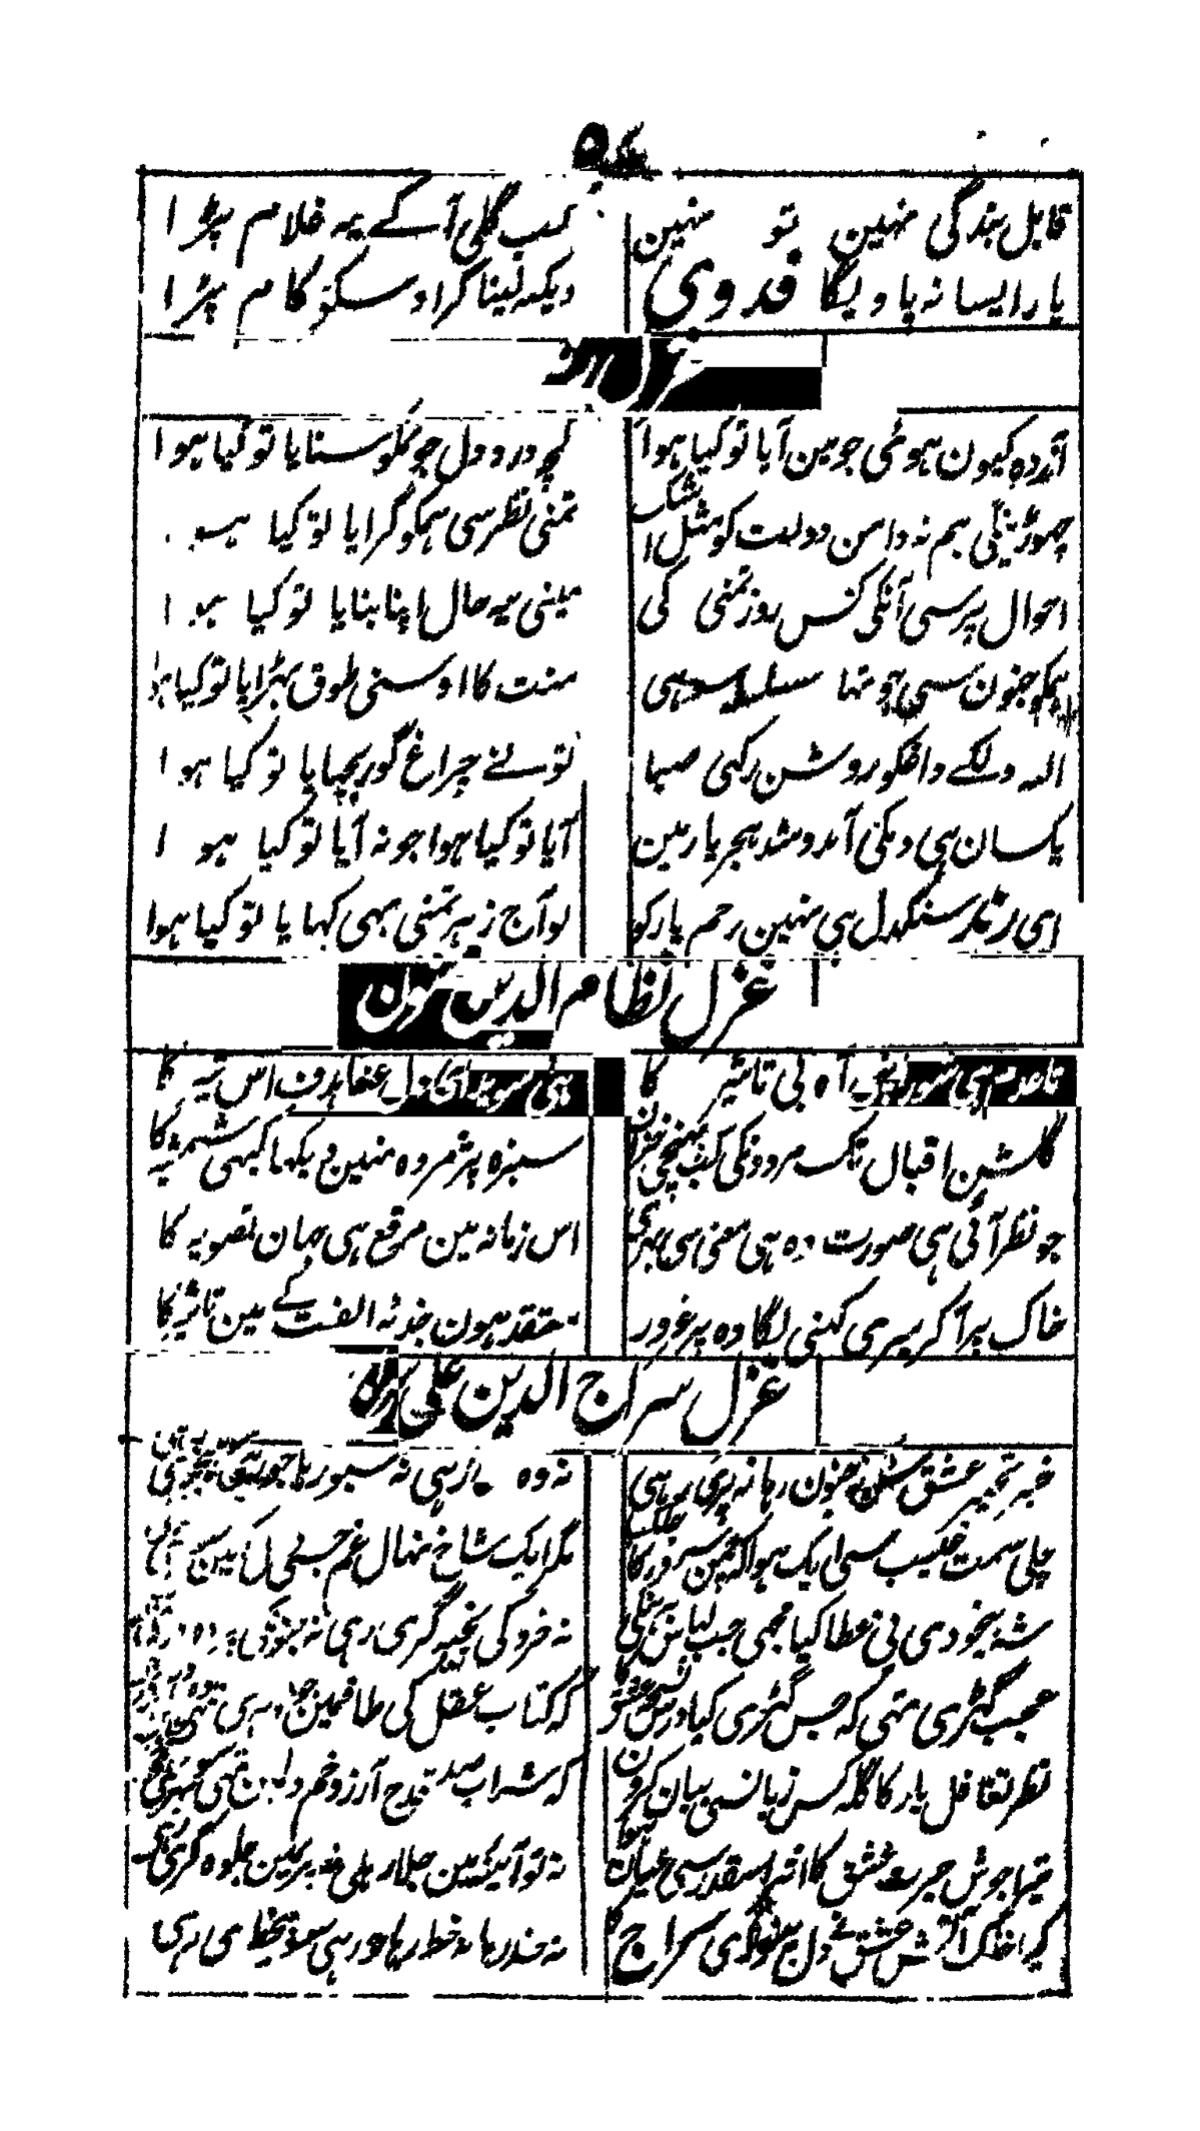 قابل بندگی نہین تو نہین
کب گلی آ کے یہ غلام پڑا
یار ایسا نہ پاویگا فدوی
دیکہہ لینا کر اوسکو کام پڑا
آزردہ کیون ہوئی جو مین آیا تو کیا ہوا
کچہہ درد دل جو تمکو سنایا تو کیا ہوا
چھوڑینگی ہم نہ دامن دولت کو مثل اشک
تمنی نظر سی ہمکو گرایا تو کیا
احوال پرسی آنکی کس روز تمنی کی
مینی یہ حال اپنا بنایا تو کیا ہوا
ہمکو جنون سی جو تہا سلسلہ وہی
منت کا اوسنی طوق بڑہایا تو کیا ہوا
اللہ دلکے داغکو روشن رکہی صبا
تونے چراغ گور بجہایا تو کیا ہوا
یکسان ہی دمکی آمد و شد ہجر یار مین
آیا تو کیا ہوا جو نہ آیا تو کیا ہوا
ای رند سنگدل ہی نہین رحم یار کو
لو آج زہر تمنی بہی کہایا تو کیا ہوا
غزل نظام الدین ممنون
تا عدم ہی آہ بی تاثیر کا
ہی سویدای دل عنقا ہدف اس تیر کا
گلشن اقبال تک مردونکی کب پہنچی خزان
سبزہ پژمردہ نہین دیکہا کبہی شمشیر کا
جو نظر آئی ہی صورت وہ ہی معنی سی بہری
اس زمانہ مین مرقع ہی جہان تصویر کا
خاک پر آ کر پیر ہی کہنی لگا وہ پر غرور
معتقد ہون جذبہ الفت کے مین تاثیر کا
غزل سراج الدین علی
خبر تحیر عشق سن نہ جنون رہا نہ پری رہی
نہ وہ رہی نہ رہا جو رہی سو بیخبری رہی
چلی سمت غیب سی ایک ہوا کہ چمن سرور کا
مگر ایک شاخ نہال غم جسی دل کہین
شہ بیخودی نی عطا کیا مجہی جب لباس برہنگی
نہ خرد کی بخیہ گری رہی نہ جنون کی پردہ دری رہی
عجب گہڑی تہی کہ جس گہڑی لیا درس نسخہ عشق کا
کہ کتاب عقل کی طاق مین جو دہری تہی
نظر تغافل یار کا گلہ کس زبانسی بیان کرون
کہ شراب صد قدح آرزو خم دل مین تہی سو بہری رہی
جوش حیرت عشق کا اثر اسقدر سی عیان ہوا
نہ تو آئینہ مین جلا رہی نہ پری مین جلوہ گری رہی
کیا خاک آتش عشق نے دل بینوای سراج کا
نہ حذر رہا نہ خطر رہا جو رہی سو بیخطری رہی